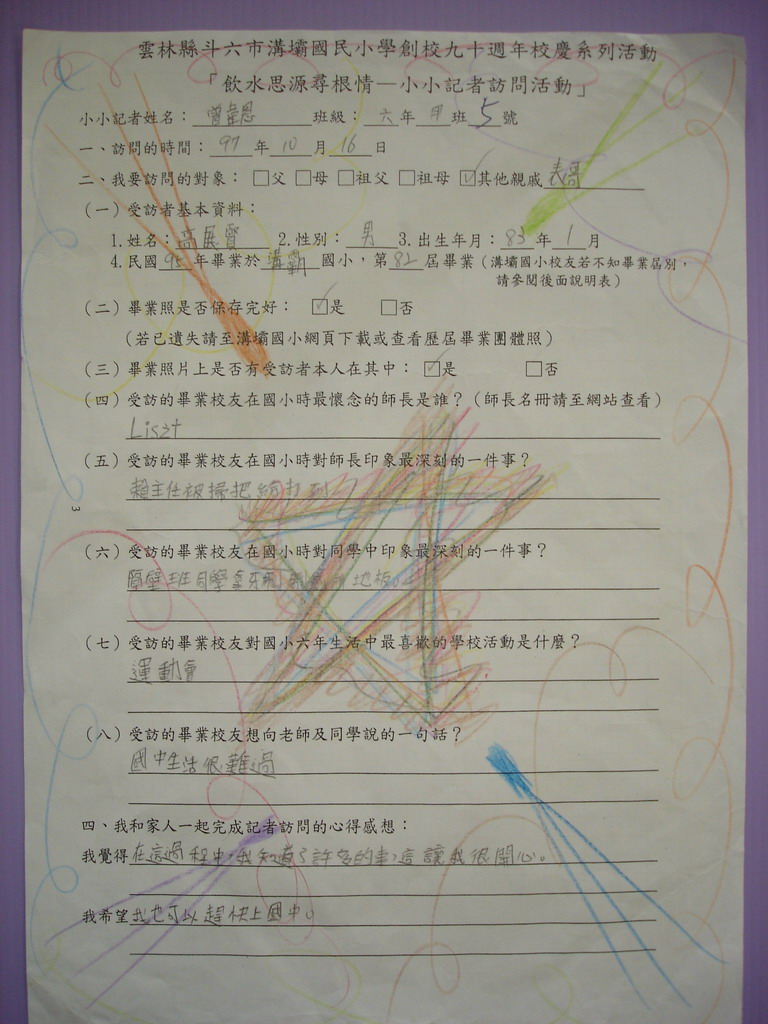 雲林縣斗六市溝壩國民小學創校九十週年校慶系列活動
「飲水思源尋根情—小小記者訪問活動」
小小記者姓名：曾韋恩 班級：六年甲班5號
一、訪問的時間：97年10月16日
二、我要訪問的對象：□父 □母 □祖父 □祖母 ☑其他親戚表哥
（一）受訪者基本資料：
1.姓名：高展賢 2.性別：男 3.出生年月：83年1月
4.民國95年畢業於溝霸國小，第82屆畢業（溝壩國小校友若不知畢業屆別，
請參閱後面說明表）
（二）畢業照是否保存完好：☑是 □否
（若已遺失請至溝壩國小網頁下載或查看歷屆畢業團體照）
（三）畢業照片上是否有受訪者本人在其中：☑是 □否
（四）受訪的畢業校友在國小時最懷念的師長是誰？（師長名冊請至網站查看）
Liszt
（五）受訪的畢業校友在國小時對師長印象最深刻的一件事？
賴主任被掃把打到
3
（六）受訪的畢業校友在國小時對同學中印象最深刻的一件事？
隔壁班同學拿牙刷刷地板。
（七）受訪的畢業校友對國小六年生活中最喜歡的學校活動是什麼？
運動會
（八）受訪的畢業校友想向老師及同學說的一句話？
國中生活很難過
四、我和家人一起完成記者訪問的心得感想：
我覺得在這過程中，我知道了許多的事，這讓我很開心。
我希望我也可以趕快上國中。